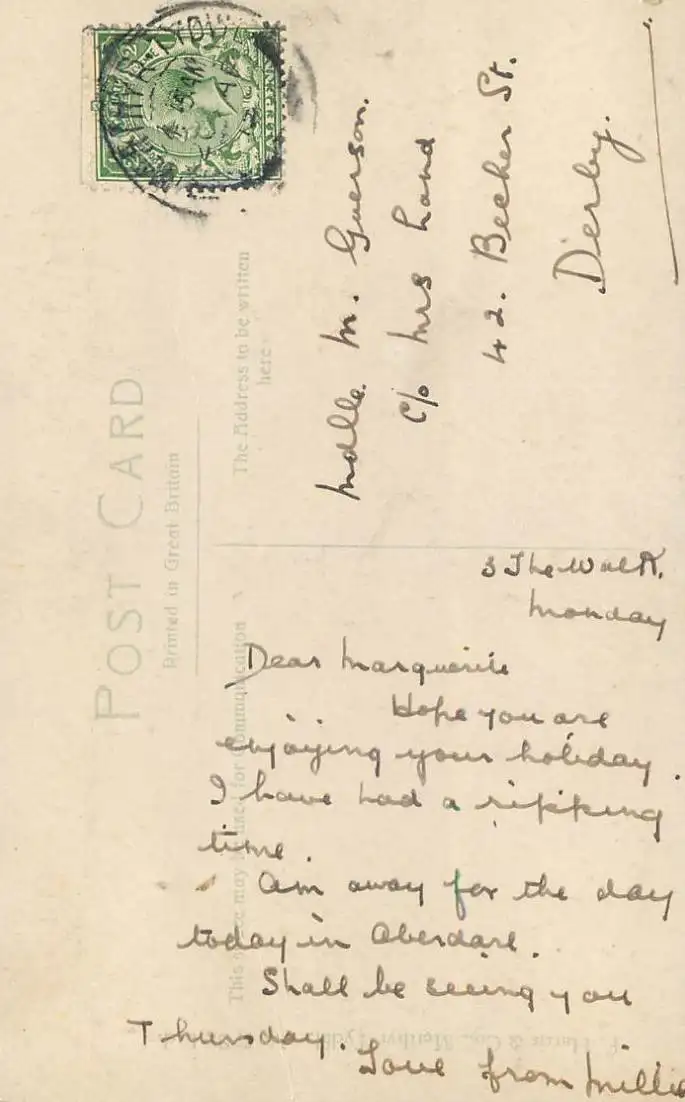 POST CARD
Printed in Great Britain
This space may be used for Communication
The Address to be written
here
Mdlle. M. Guerson.
c/o Mrs Hand
42. Becher St.
Derby.
3 The Walk.
Monday
Dear Marguerite
Hope you are
enjoying your holiday.
I have had a ripping
time.
Am away for the day
today in Aberdare.
Shall be seeing you
Thursday.
Love from Millie